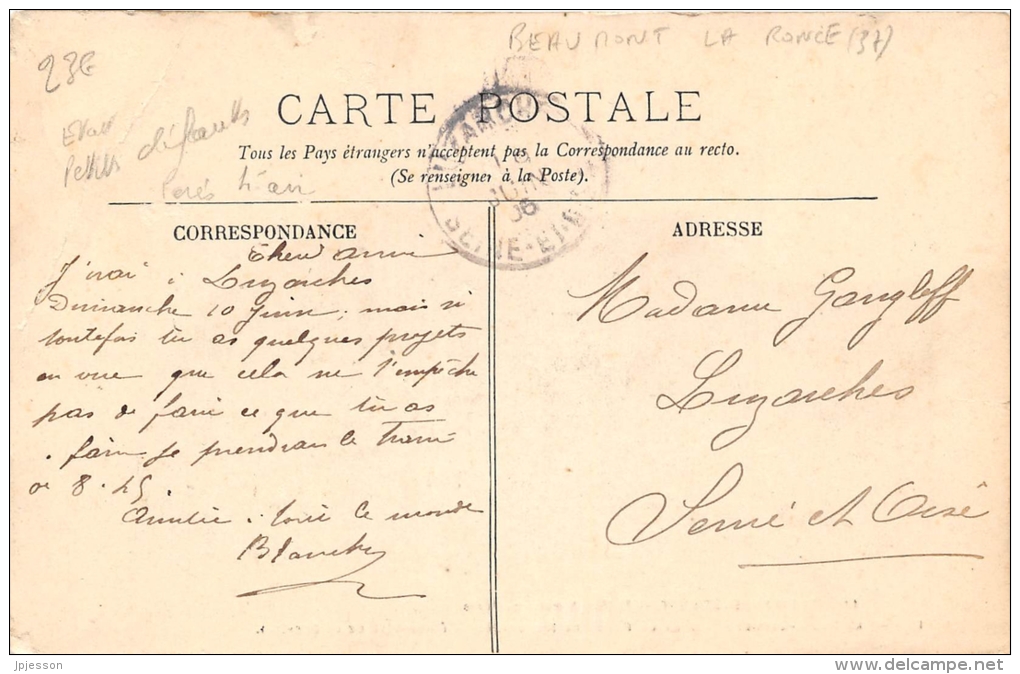 BEAUMONT LA RONCE (37)
23E
CARTE POSTALE
Etat
Petits défauts
Tous les Pays étrangers n'acceptent pas la Correspondance au recto.
(Se renseigner à la Poste).
JUIN
06
SEINE-ET-
CORRESPONDANCE
Cher ami
J'irai à Luzarches
Dimanche 10 Juin, mais si
toutefois tu as quelques projets
en vue que cela ne t'empêche
pas de faire ce que tu as
à faire je prendrai le train
de 8.45.
Amitié à tout le monde
Blanche
ADRESSE
Madame Gangloff
Luzarches
Seine et Oise
jpjesson
delcampe.net